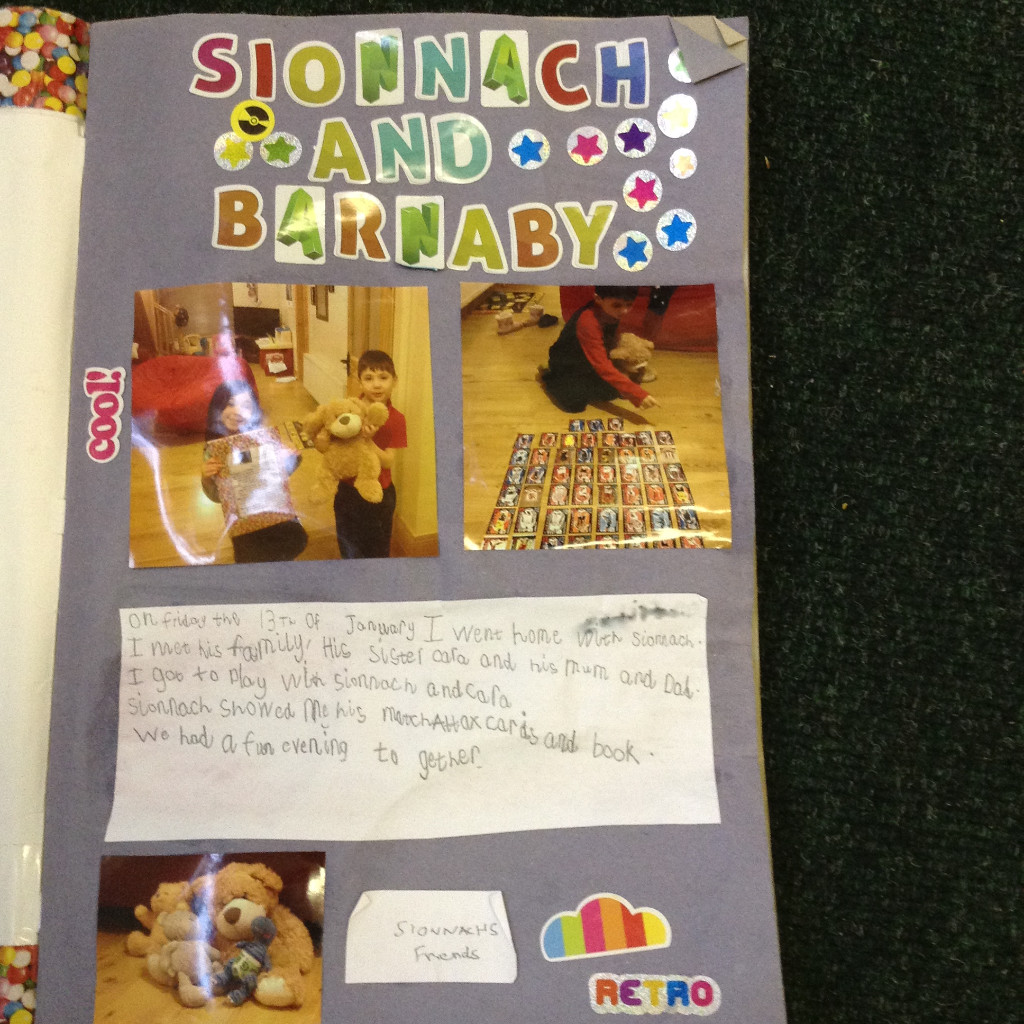 SIONNACH
AND
BARNABY
cool!
on friday the 13TH OF January I went home with sionnach.
I met his family, His sister cara and his mum and Dad.
I got to play with sionnach and cara
sionnach showed me his match Attax cards and book.
we had a fun evening to gether.
SIONNACHS
Friends
RETRO